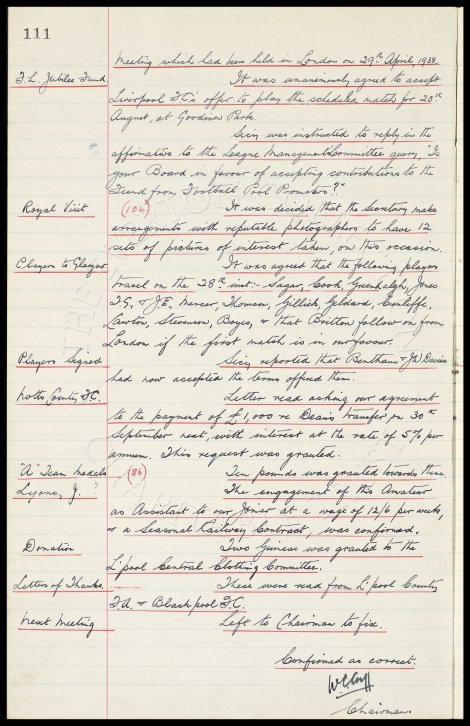 111
meeting which had been held in London on 29th April 1938.
F.L. Jubilee Fund. It was unanimously agreed to accept
Liverpool FC's offer to play the scheduled match for 20th
August, at Goodison Park.
Secy was instructed to reply in the
affirmative to the League Management Committee query "Is
your Board in favour of accepting contributions to the
Fund from Football Pool Promoters?"
Royal Visit (104) It was decided that the Secretary make
arrangements with reputable photographers to have 12
sets of pictures of interest taken, on this occasion.
Players to Glasgow It was agreed that the following players
travel on the 28th inst:- Sagar, Cook, Greenhalgh, Jones
T.G. & J.E. Mercer, Thomson, Gillick, Geldard, Cunliffe,
Lawton, Stevenson, Boyes, & that Britton follow on from
London if the first match is in our favour.
Players Signed Secy reported that Bentham & J.W. Davies
had now accepted the terms offered them.
Notts County F.C. Letter read asking our agreement
to the payment of £1,000 re Dean's transfer on 30th
September next, with interest at the rate of 5% per
annum. This request was granted.
"A" Team Medals (86) Ten pounds was granted towards these.
Lyons, J. ? The engagement of this Amateur
as Assistant to our Joiner at a wage of 12/6 per week,
& a Seasonal Railway Contract, was confirmed.
Donation Two Guineas was granted to the
L'pool Central Clothing Committee.
Letters of Thanks. These were read from L'pool County
F.A. & Blackpool F.C.
Next Meeting Left to Chairman to fix.
Confirmed as correct.
W C Cuff
Chairman.